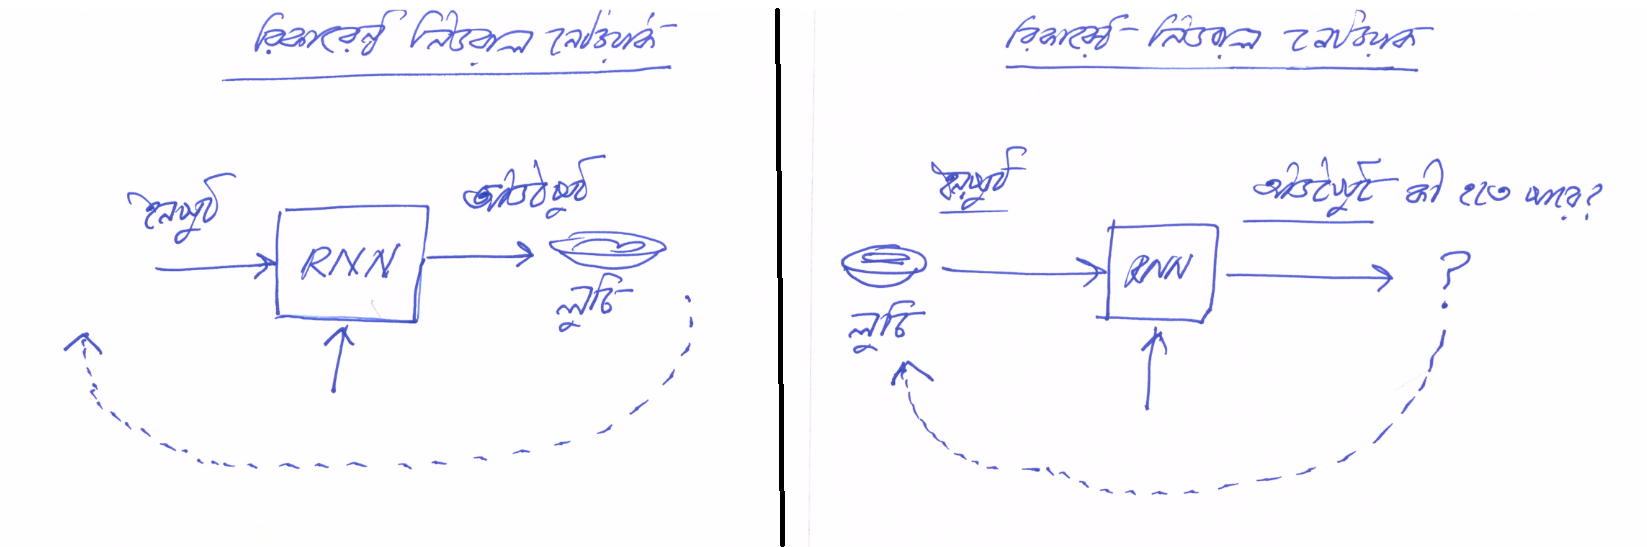 রিকারেন্ট নিউরাল নেটওয়ার্ক
ইনপুট
আউটপুট
RNN
লুচি
রিকারেন্ট নিউরাল নেটওয়ার্ক
ইনপুট
আউটপুট কী হতে পারে?
RNN
?
লুচি